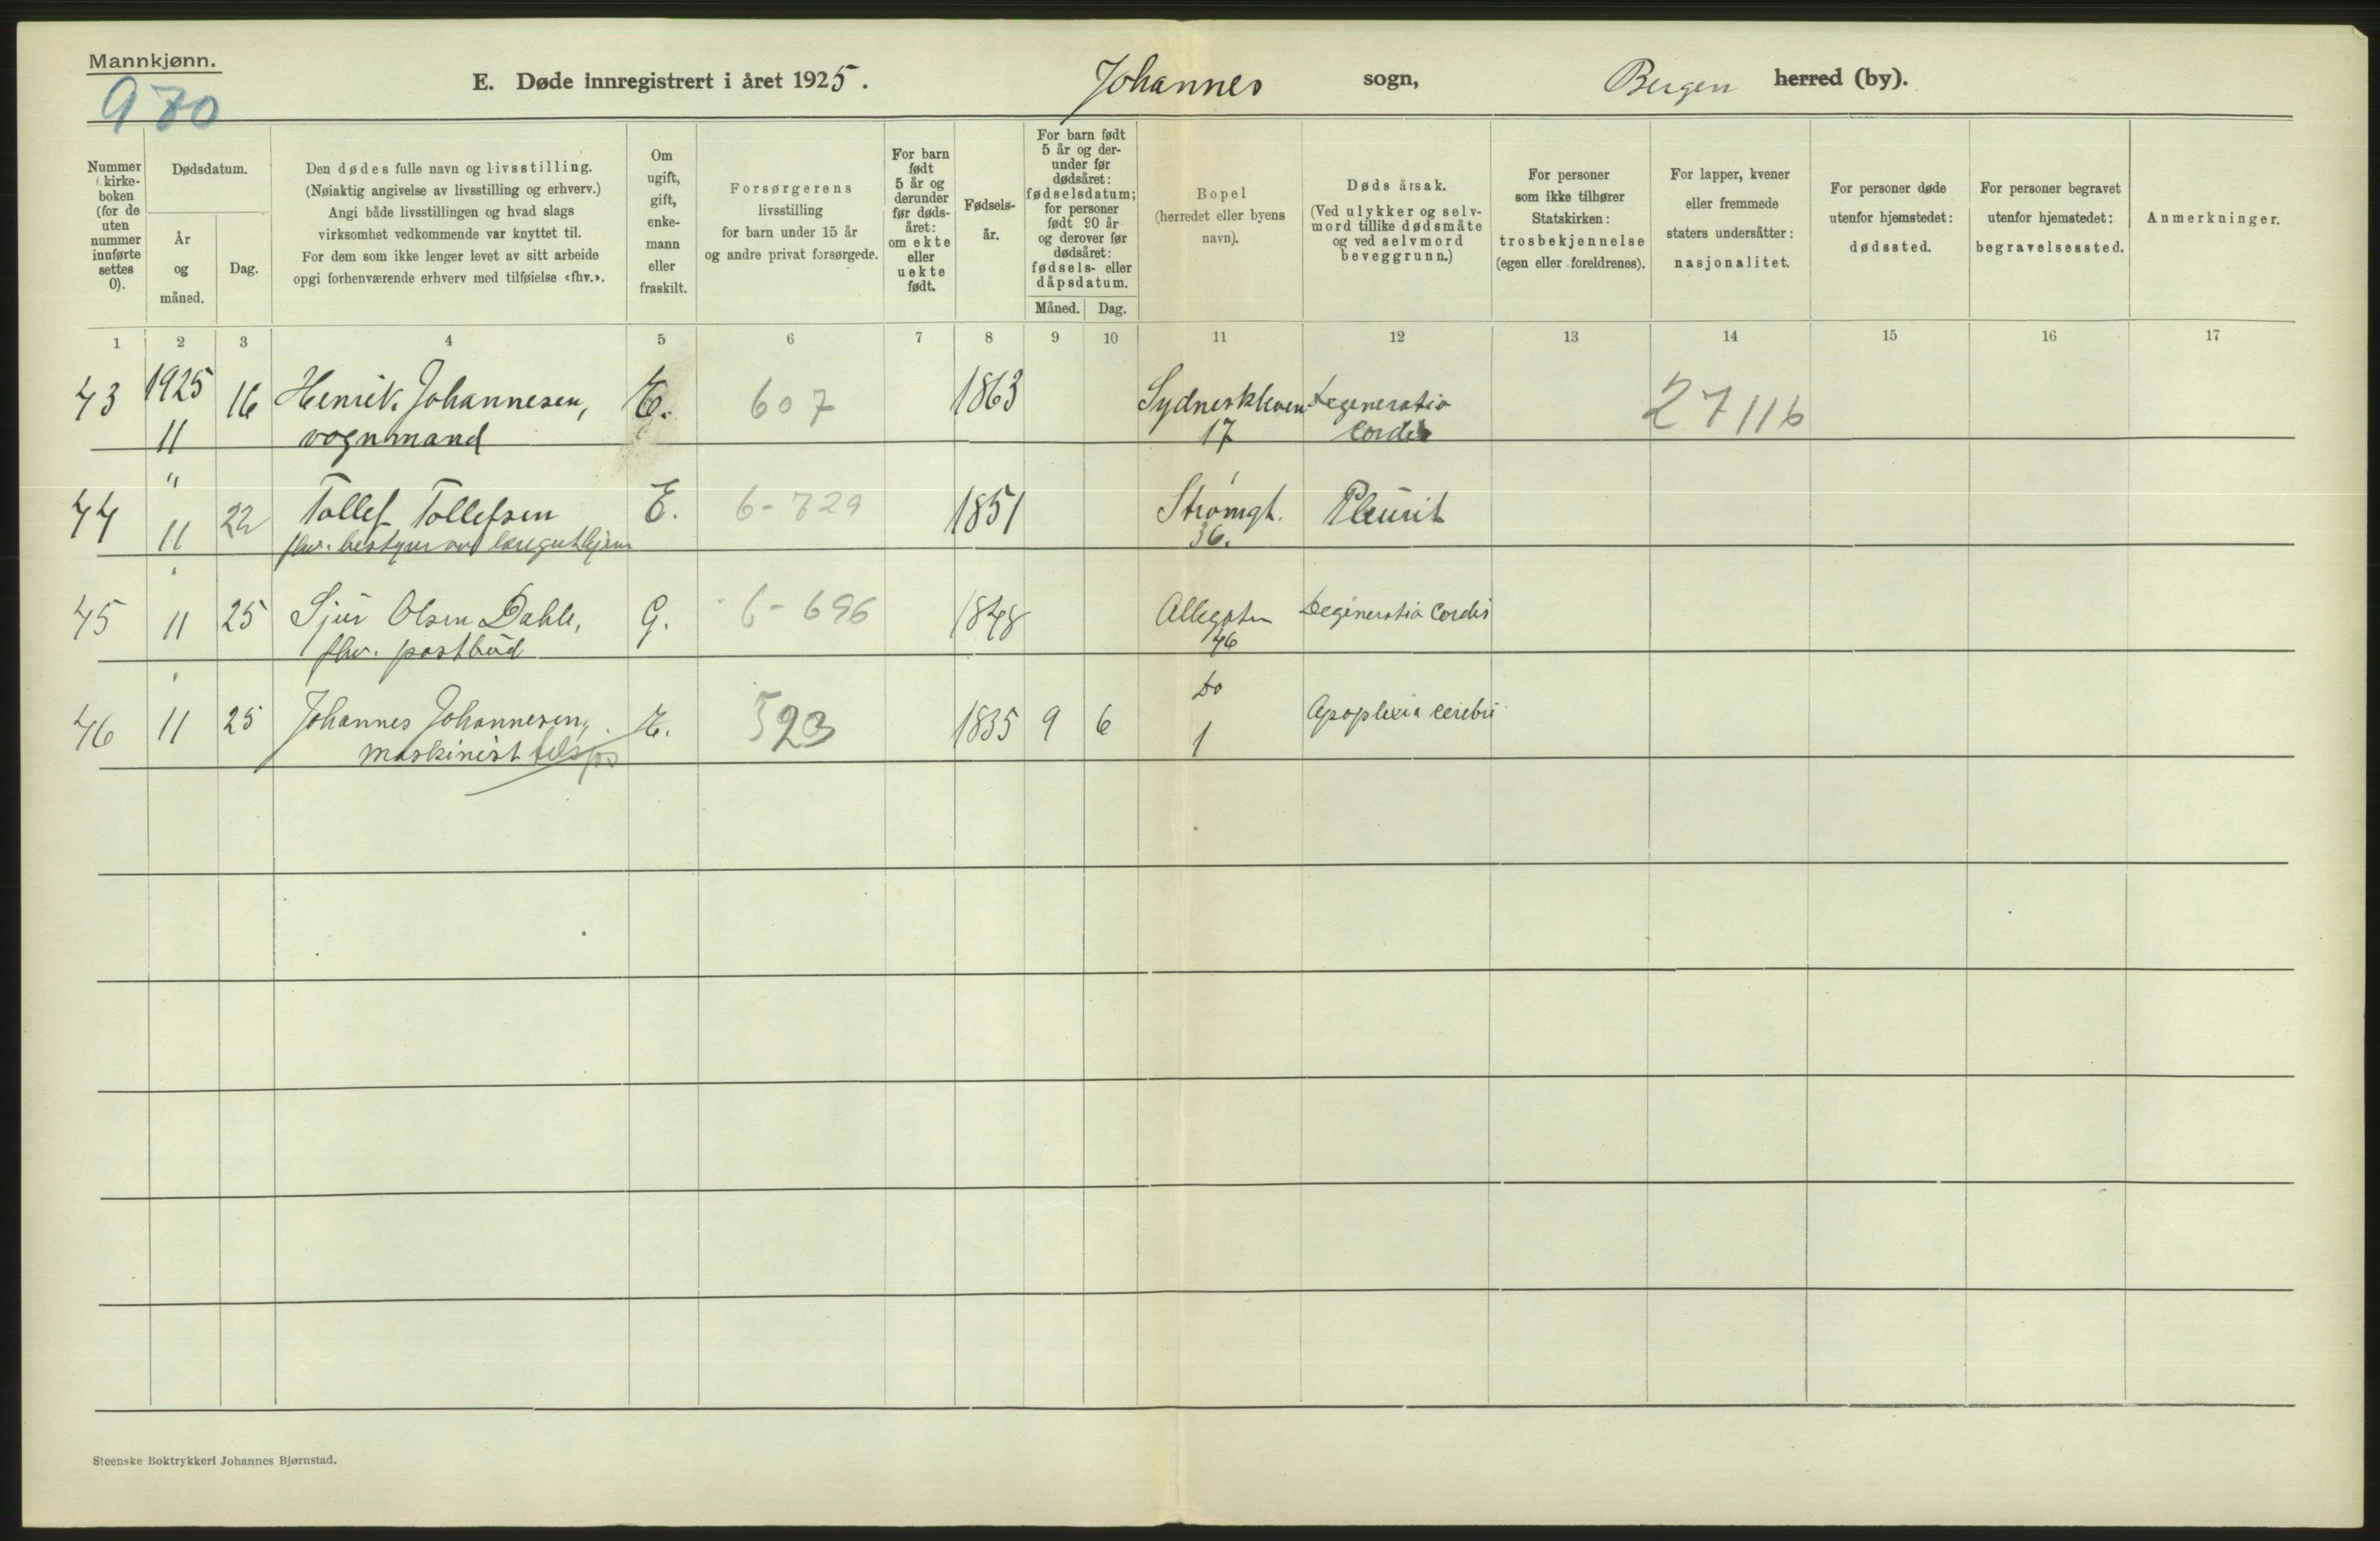 Mannkjønn.
970
E. Døde innregistrert i året 1925. Johannes sogn, Bergen herred (by).
Nummer i kirke-
boken
(for de
uten
nummer
innførte
settes
0).
Dødsdatum.
År
og
måned.
Dag.
Den dødes fulle navn og livsstilling.
(Nøiaktig angivelse av livsstilling og erhverv.)
Angi både livsstillingen og hvad slags
virksomhet vedkommende var knyttet til.
For dem som ikke lenger levet av sitt arbeide
opgi forhenværende erhverv med tilføielse «fhv.».
Om
ugift,
gift,
enke-
mann
eller
fraskilt.
Forsørgerens
livsstilling
for barn under 15 år
og andre privat forsørgede.
For barn
født
5 år og
derunder
før døds-
året:
om ekte
eller
uekte
født.
Fødsels-
år.
For barn født
5 år og der-
under før
dødsåret:
fødselsdatum;
for personer
født 90 år
og derover før
dødsåret:
fødsels- eller
dåpsdatum.
Måned. Dag.
Bopel
(herredet eller byens
navn).
Dødsårsak.
(Ved ulykker og selv-
mord tillike dødsmåte
og ved selvmord
beveggrunn.)
For personer
som ikke tilhører
Statskirken:
trosbekjennelse
(egen eller foreldrenes).
For lapper, kvener
eller fremmede
staters undersåtter:
nasjonalitet.
For personer døde
utenfor hjemstedet:
dødssted.
For personer begravet
utenfor hjemstedet:
begravelsessted.
Anmerkninger.
1 2 3 4 5 6 7 8 9 10 11 12 13 14 15 16 17
43 1925 16 Henrik Johannesen, E. 607 1863 Sydneskleven Degeneratio 27116
11 vognmand 17 Cordis
44 " 22 Tollef Tollefsen E. 6-729 1851 Strømgt. Pleurit
11 fhv. bestyrer av 36.
45 11 25 Sjur Olsen Dahle, G. 6-696 1848 Allegaten Degeneratio Cordis
fhv. postbud 46
46 11 25 Johannes Johannesen, E. 523 1835 9 6 Do Apoplexia cerebri
maskinist tilsjøs 1
Steenske Boktrykkeri Johannes Bjørnstad.